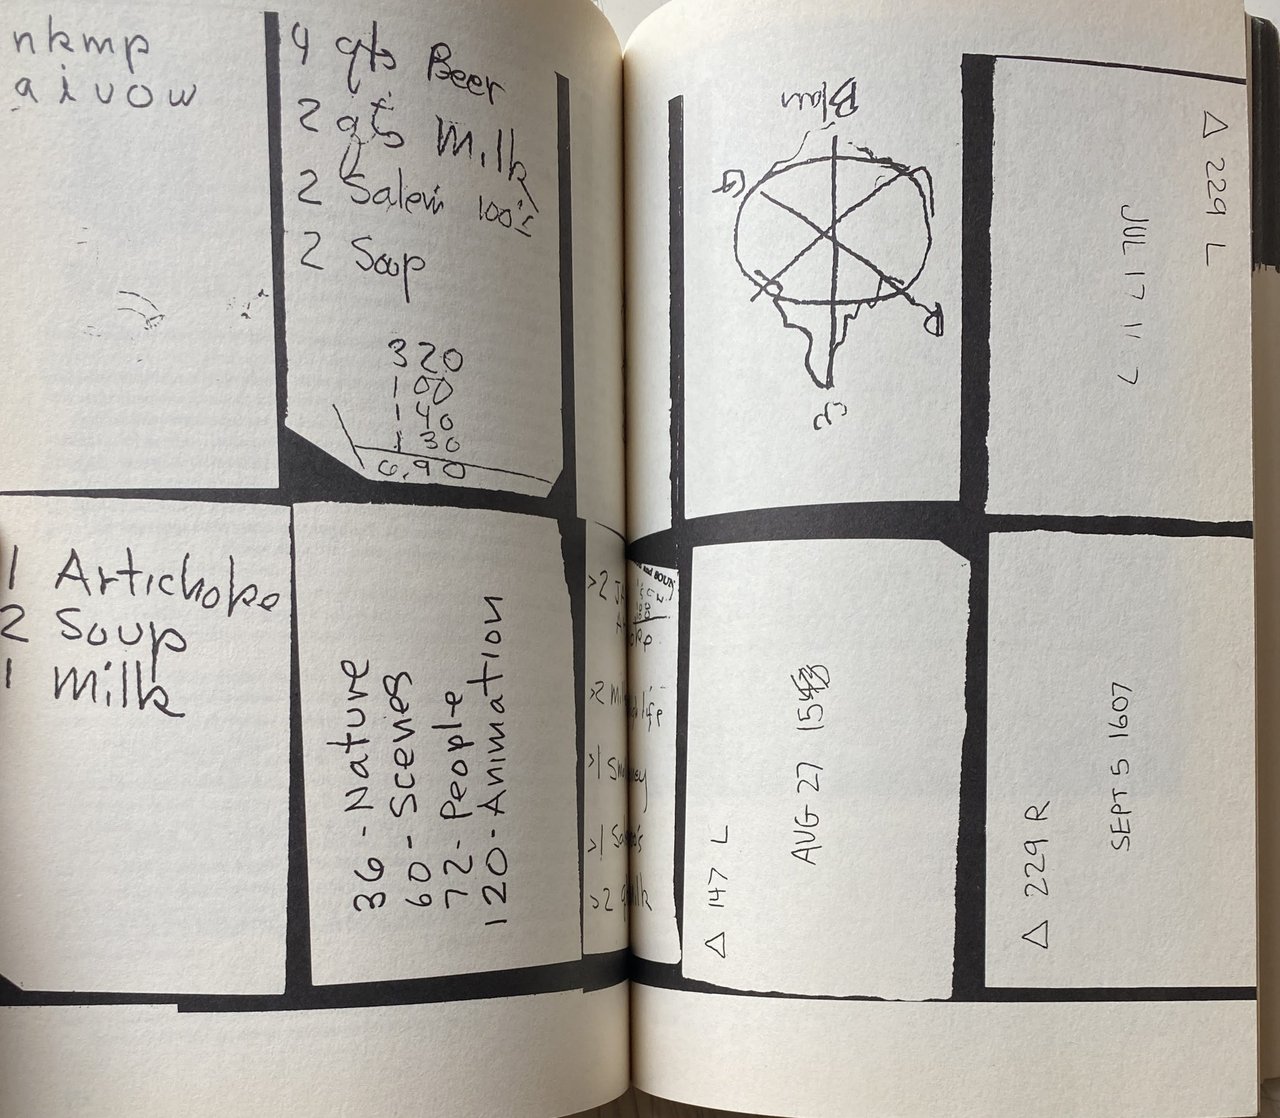 nkmp
aiuow
4 qts Beer
2 qts Milk
2 Salem 100's
2 Soup
320
100
140
130
6.90
1 Artichoke
2 Soup
1 Milk
36 - Nature
60 - Scenes
72 - People
120 - Animation
>2
>2
>1
>1
>2
Blau
G
R
△ 229 L
JUL 17 11
△ 147 L
AUG 27
△ 229 R
SEPT 5 1607